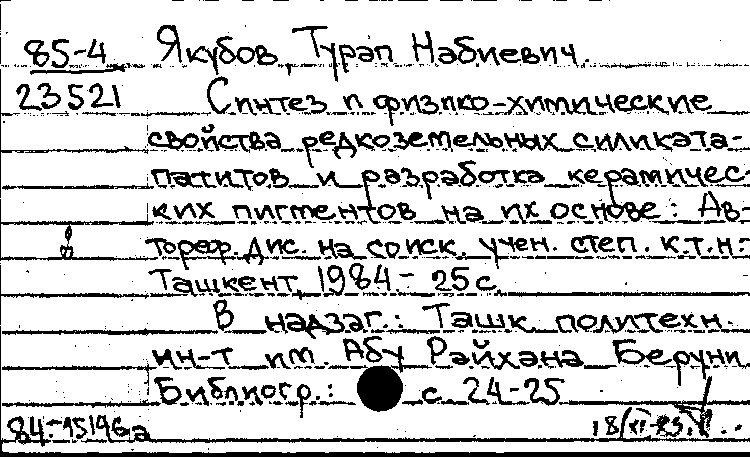 85-4 Якубов, Турап Набиевич.
23521 Синтез и физико-химические
свойства редкоземельных силиката-
патитов и разработка керамичес-
ких пигментов на их основе: Ав-
тореф. дис. на соиск. учен. степ. к.т.н.
Ташкент, 1984.- 25 с.
В надзаг.: Ташк. политехн.
ин-т им. Абу Райхана Беруни
Библиогр.: с. 24-25
84-15146а